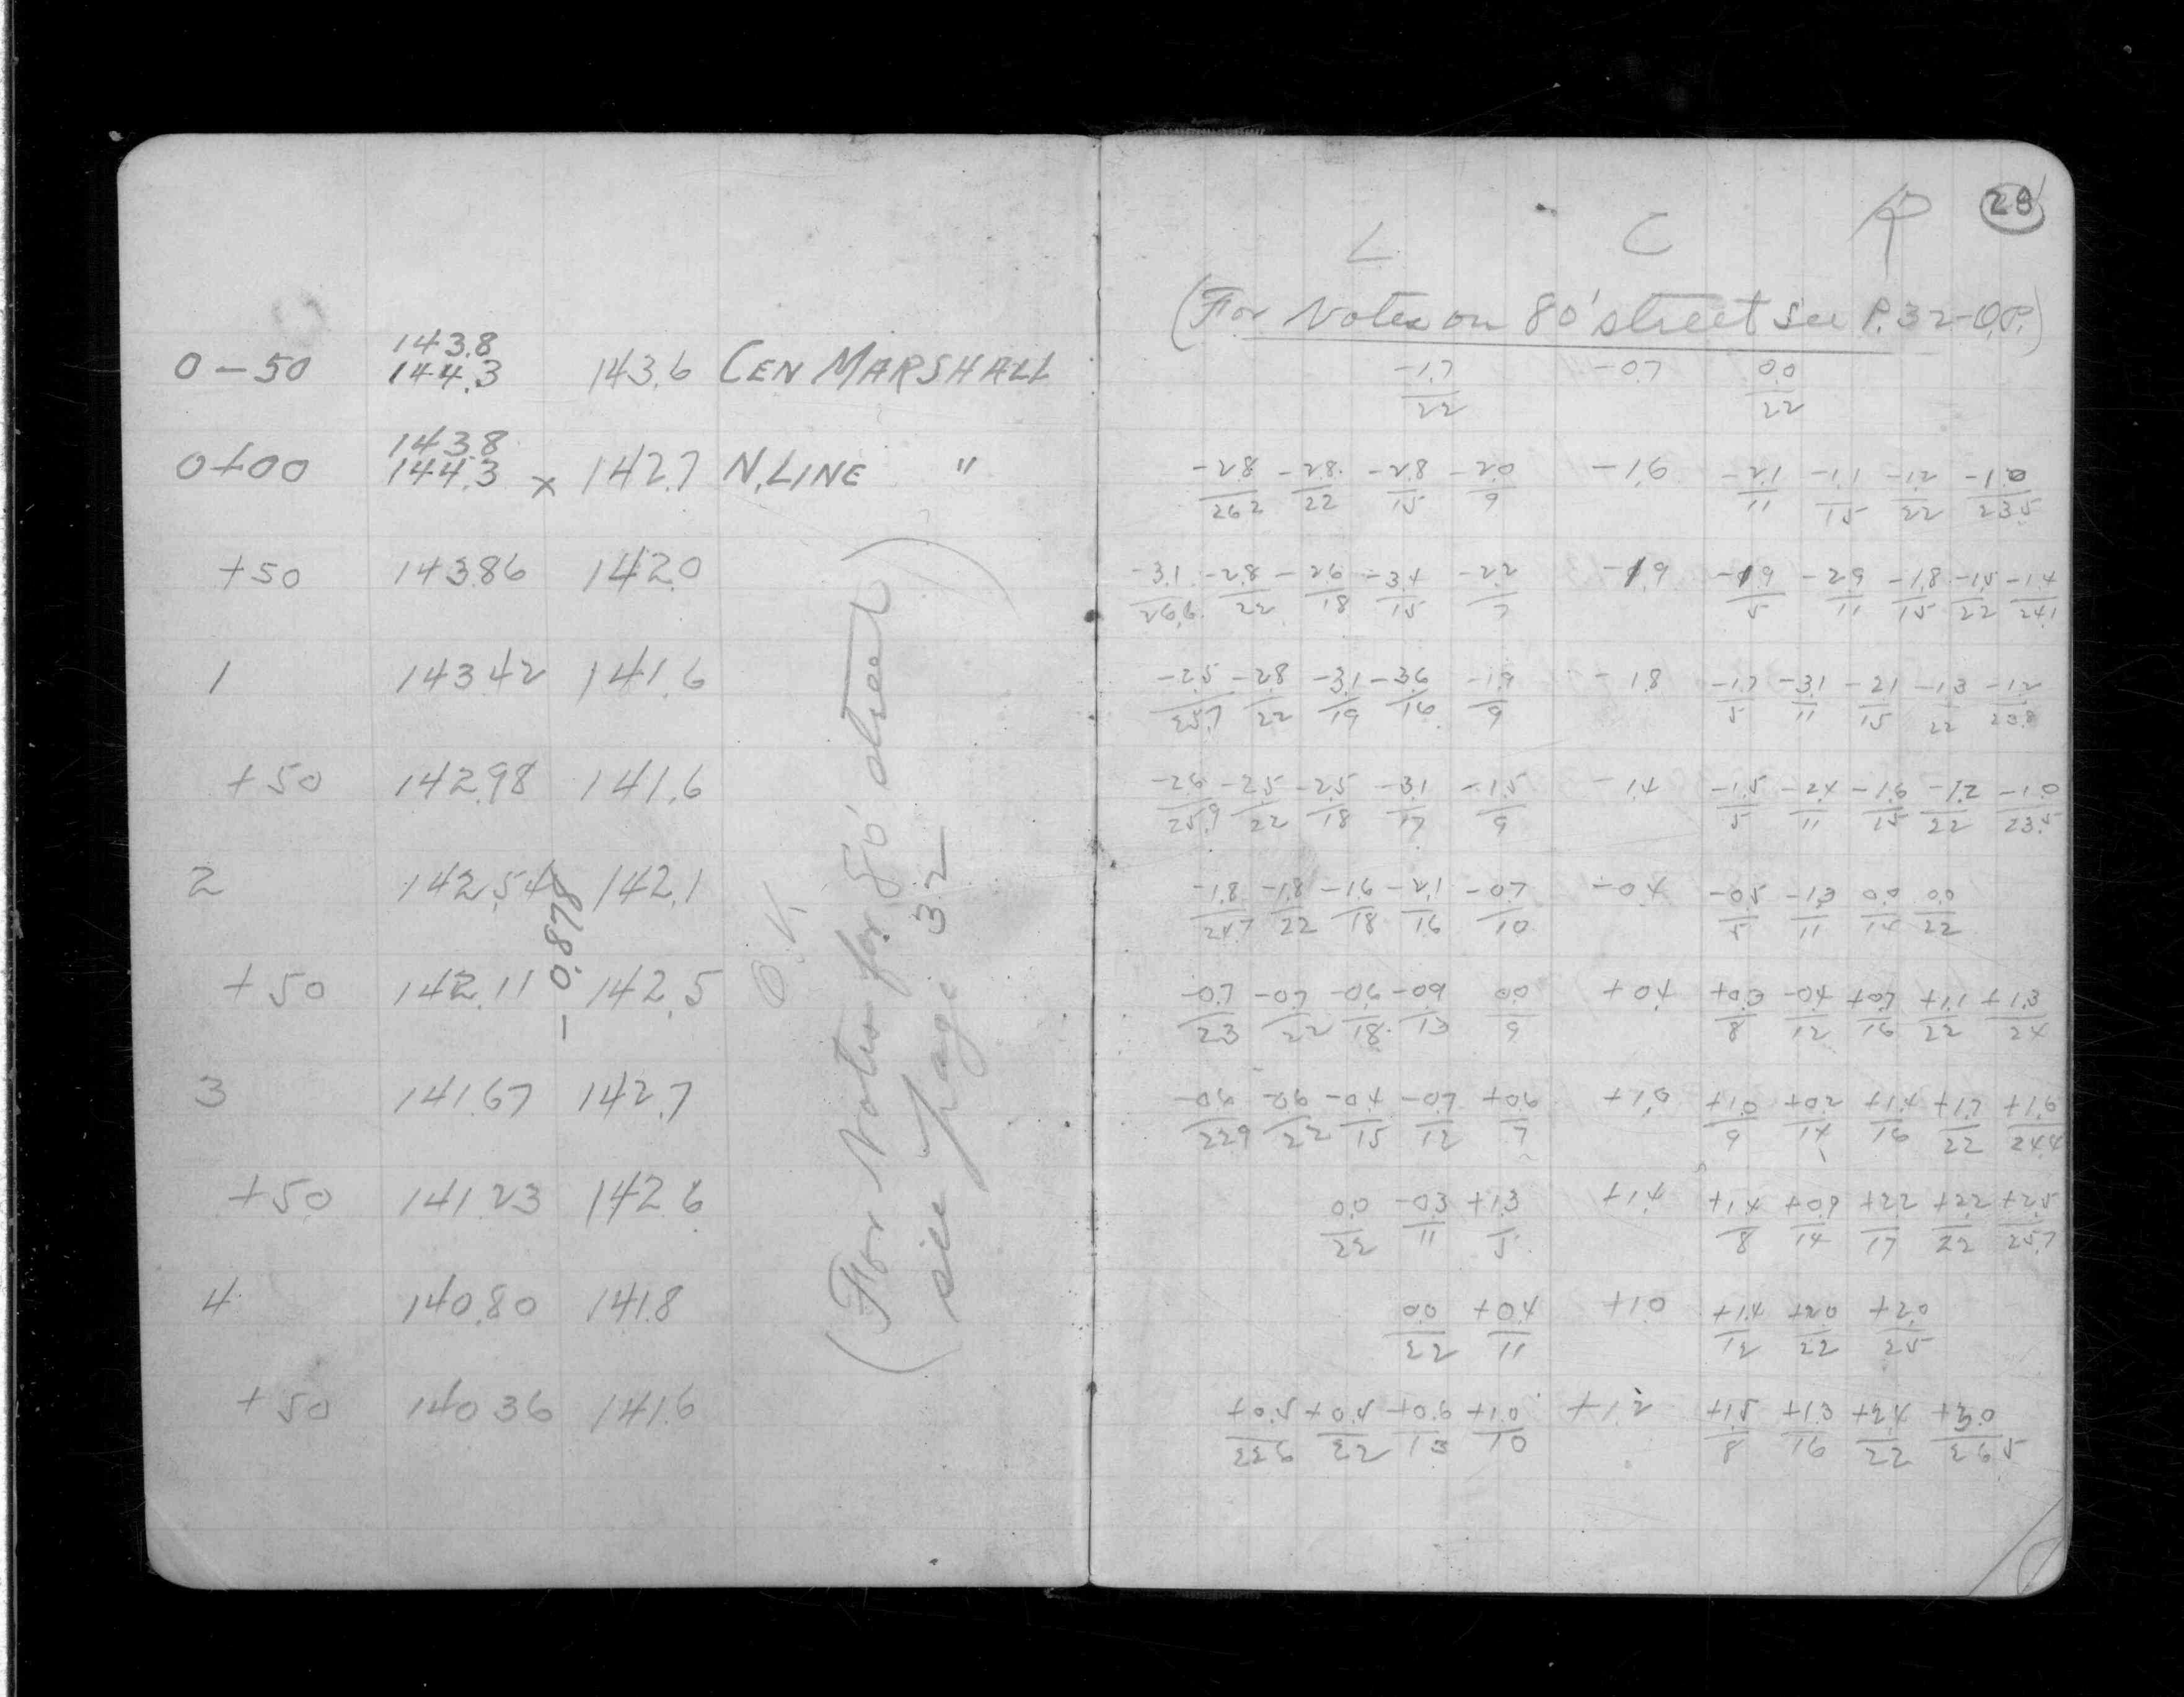 0-50 143.8 144.3 143.6 CEN MARSHALL
0+00 143.8 144.3 x 142.7 N. LINE "
+50 143.86 142.0
1 143.42 141.6
+50 142.98 141.6
2 142.54 142.1
+50 142.11 142.5
3 141.67 142.7
+50 141.23 142.6
4 140.80 141.8
+50 140.36 141.6
-0.878
O.K.
(For Notes for 80' street)
see page 32
28
L C R
(For Notes on 80' street see P. 32-O.P.)
-1.7 -0.7 0.0
22 22
-2.8 -2.8 -2.8 -2.0 -1.6 -2.1 -1.1 -1.2 -1.0
26.2 22 15 9 11 15 22 23.5
-3.1 -2.8 -2.6 -3.4 -2.2 -1.9 -1.9 -2.9 -1.8 -1.5 -1.4
26.6 22 18 15 7 5 11 15 22 24.1
-2.5 -2.8 -3.1 -3.6 -1.9 -1.8 -1.7 -3.1 -2.1 -1.3 -1.2
25.7 22 19 16 9 5 11 15 22 23.8
-2.6 -2.5 -2.5 -3.1 -1.5 -1.4 -1.5 -2.4 -1.6 -1.2 -1.0
25.9 22 18 17 9 5 11 15 22 23.5
-1.8 -1.8 -1.6 -2.1 -0.7 -0.4 -0.5 -1.3 0.0 0.0
24.7 22 18 16 10 5 11 14 22
-0.7 -0.7 -0.6 -0.9 0.0 +0.4 +0.3 -0.4 +0.7 +1.1 +1.3
23 22 18 13 9 8 12 16 22 24
-0.6 -0.6 -0.4 -0.7 +0.6 +1.0 +1.0 +0.2 +1.4 +1.7 +1.6
22.9 22 15 12 7 9 14 16 22 24.4
0.0 -0.3 +1.3 +1.4 +1.4 +0.9 +2.2 +2.2 +2.5
22 11 5 8 14 17 22 25.7
0.0 +0.4 +1.0 +1.4 +2.0 +2.0
22 11 12 22 25
+0.5 +0.4 +0.6 +1.0 +1.2 +1.5 +1.3 +2.4 +3.0
22.6 22 13 10 8 16 22 26.5